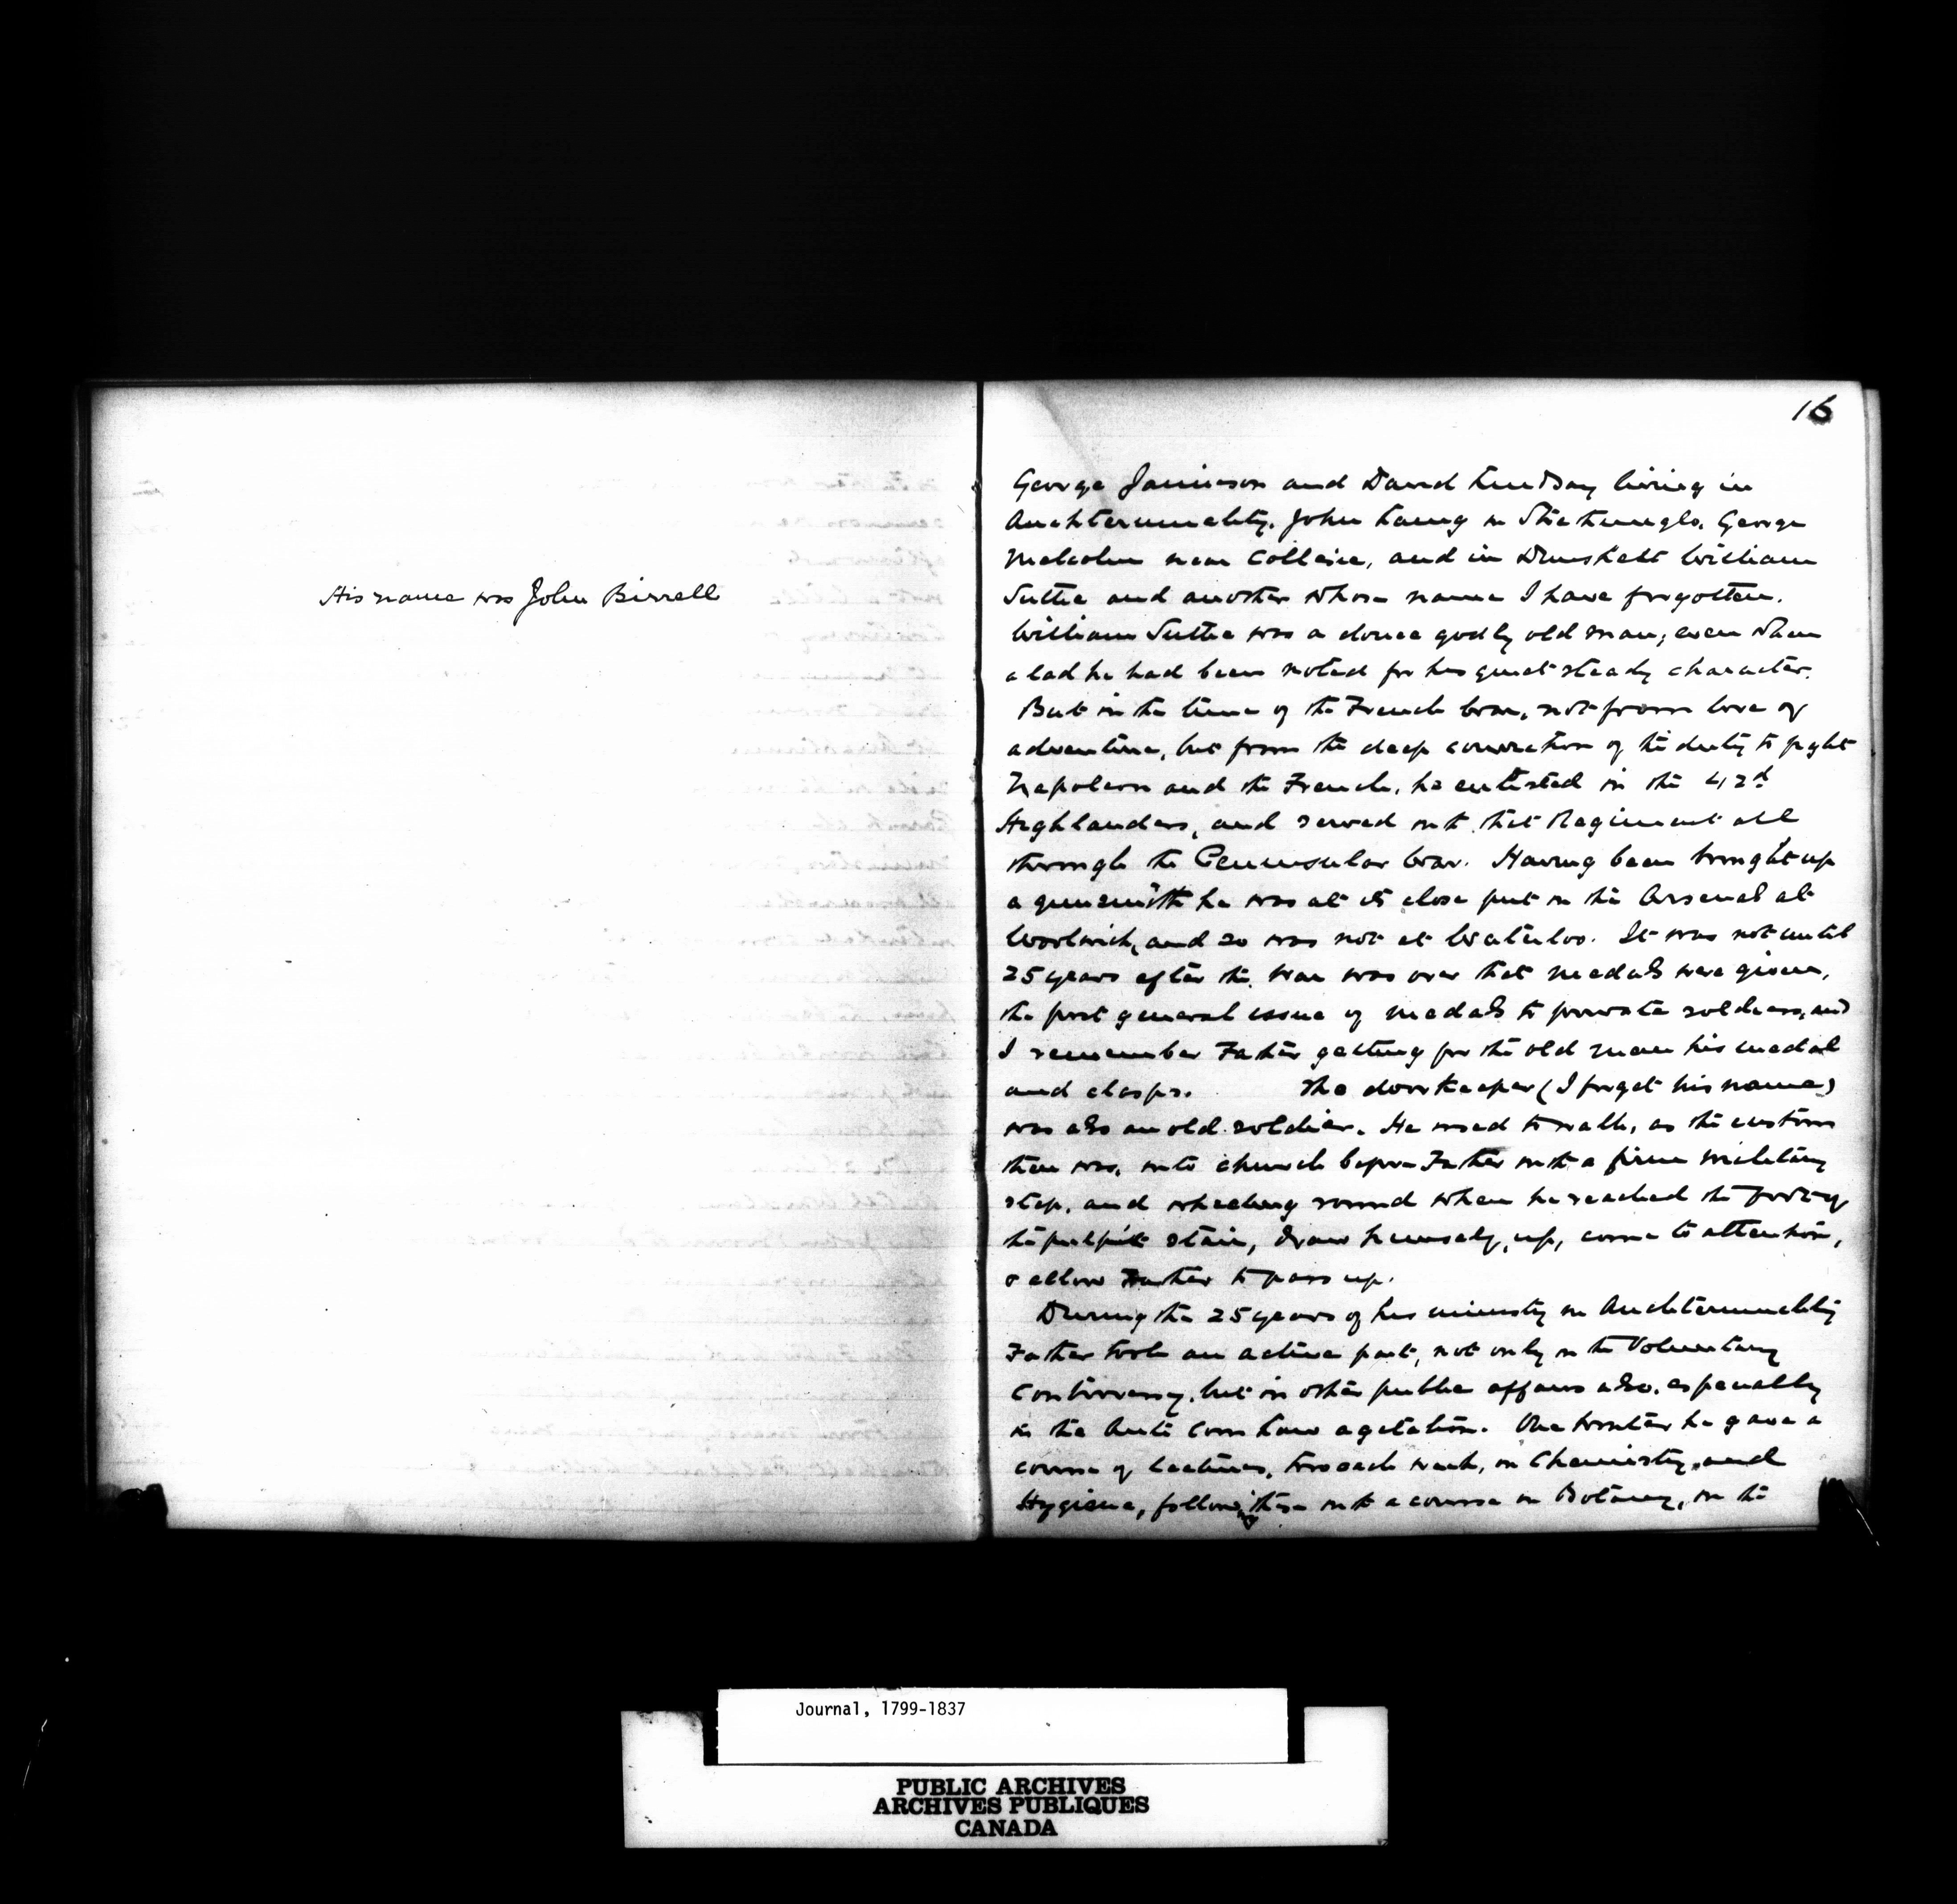 His name was John Birrell
16
George Jamieson and David Lindsay living in
Auchtermuchty, John Laing in Strathmiglo, George
Malcolm near Collessie, and in Dunshelt William
Suttie and another whose name I have forgotten.
William Suttie was a douce godly old man, even when
a lad he had been noted for his quiet steady character.
But in the time of the French War, not from love of
adventure, but from the deep conviction of the duty to fight
Napoleon and the French, he enlisted in the 42d
Highlanders, and served with that Regiment all
through the Peninsular War. Having been brought up
a gunsmith he was at its close put in the Arsenal at
Woolwich, and so was not at Waterloo. It was not until
25 years after the war was over that medals were given,
the first general issue of medals to private soldiers, and
I remember Father getting for the old man his medal
and clasps. The doorkeeper (I forget his name)
was also an old soldier. He used to walk, as the custom
then was, into church before Father with a firm military
step, and wheeling round when he reached the foot of
the pulpit stair, draw himself up, come to attention,
& allow Father to pass up.
During the 25 years of his ministry in Auchtermuchty
Father took an active part, not only in the Voluntary
Controversy, but in other public affairs also, especially
in the Anti Corn Law agitation. One winter he gave a
course of lectures, two each week, on Chemistry, and
Hygiene, following these with a course on Botany, in the
Journal, 1799-1837
PUBLIC ARCHIVES
ARCHIVES PUBLIQUES
CANADA